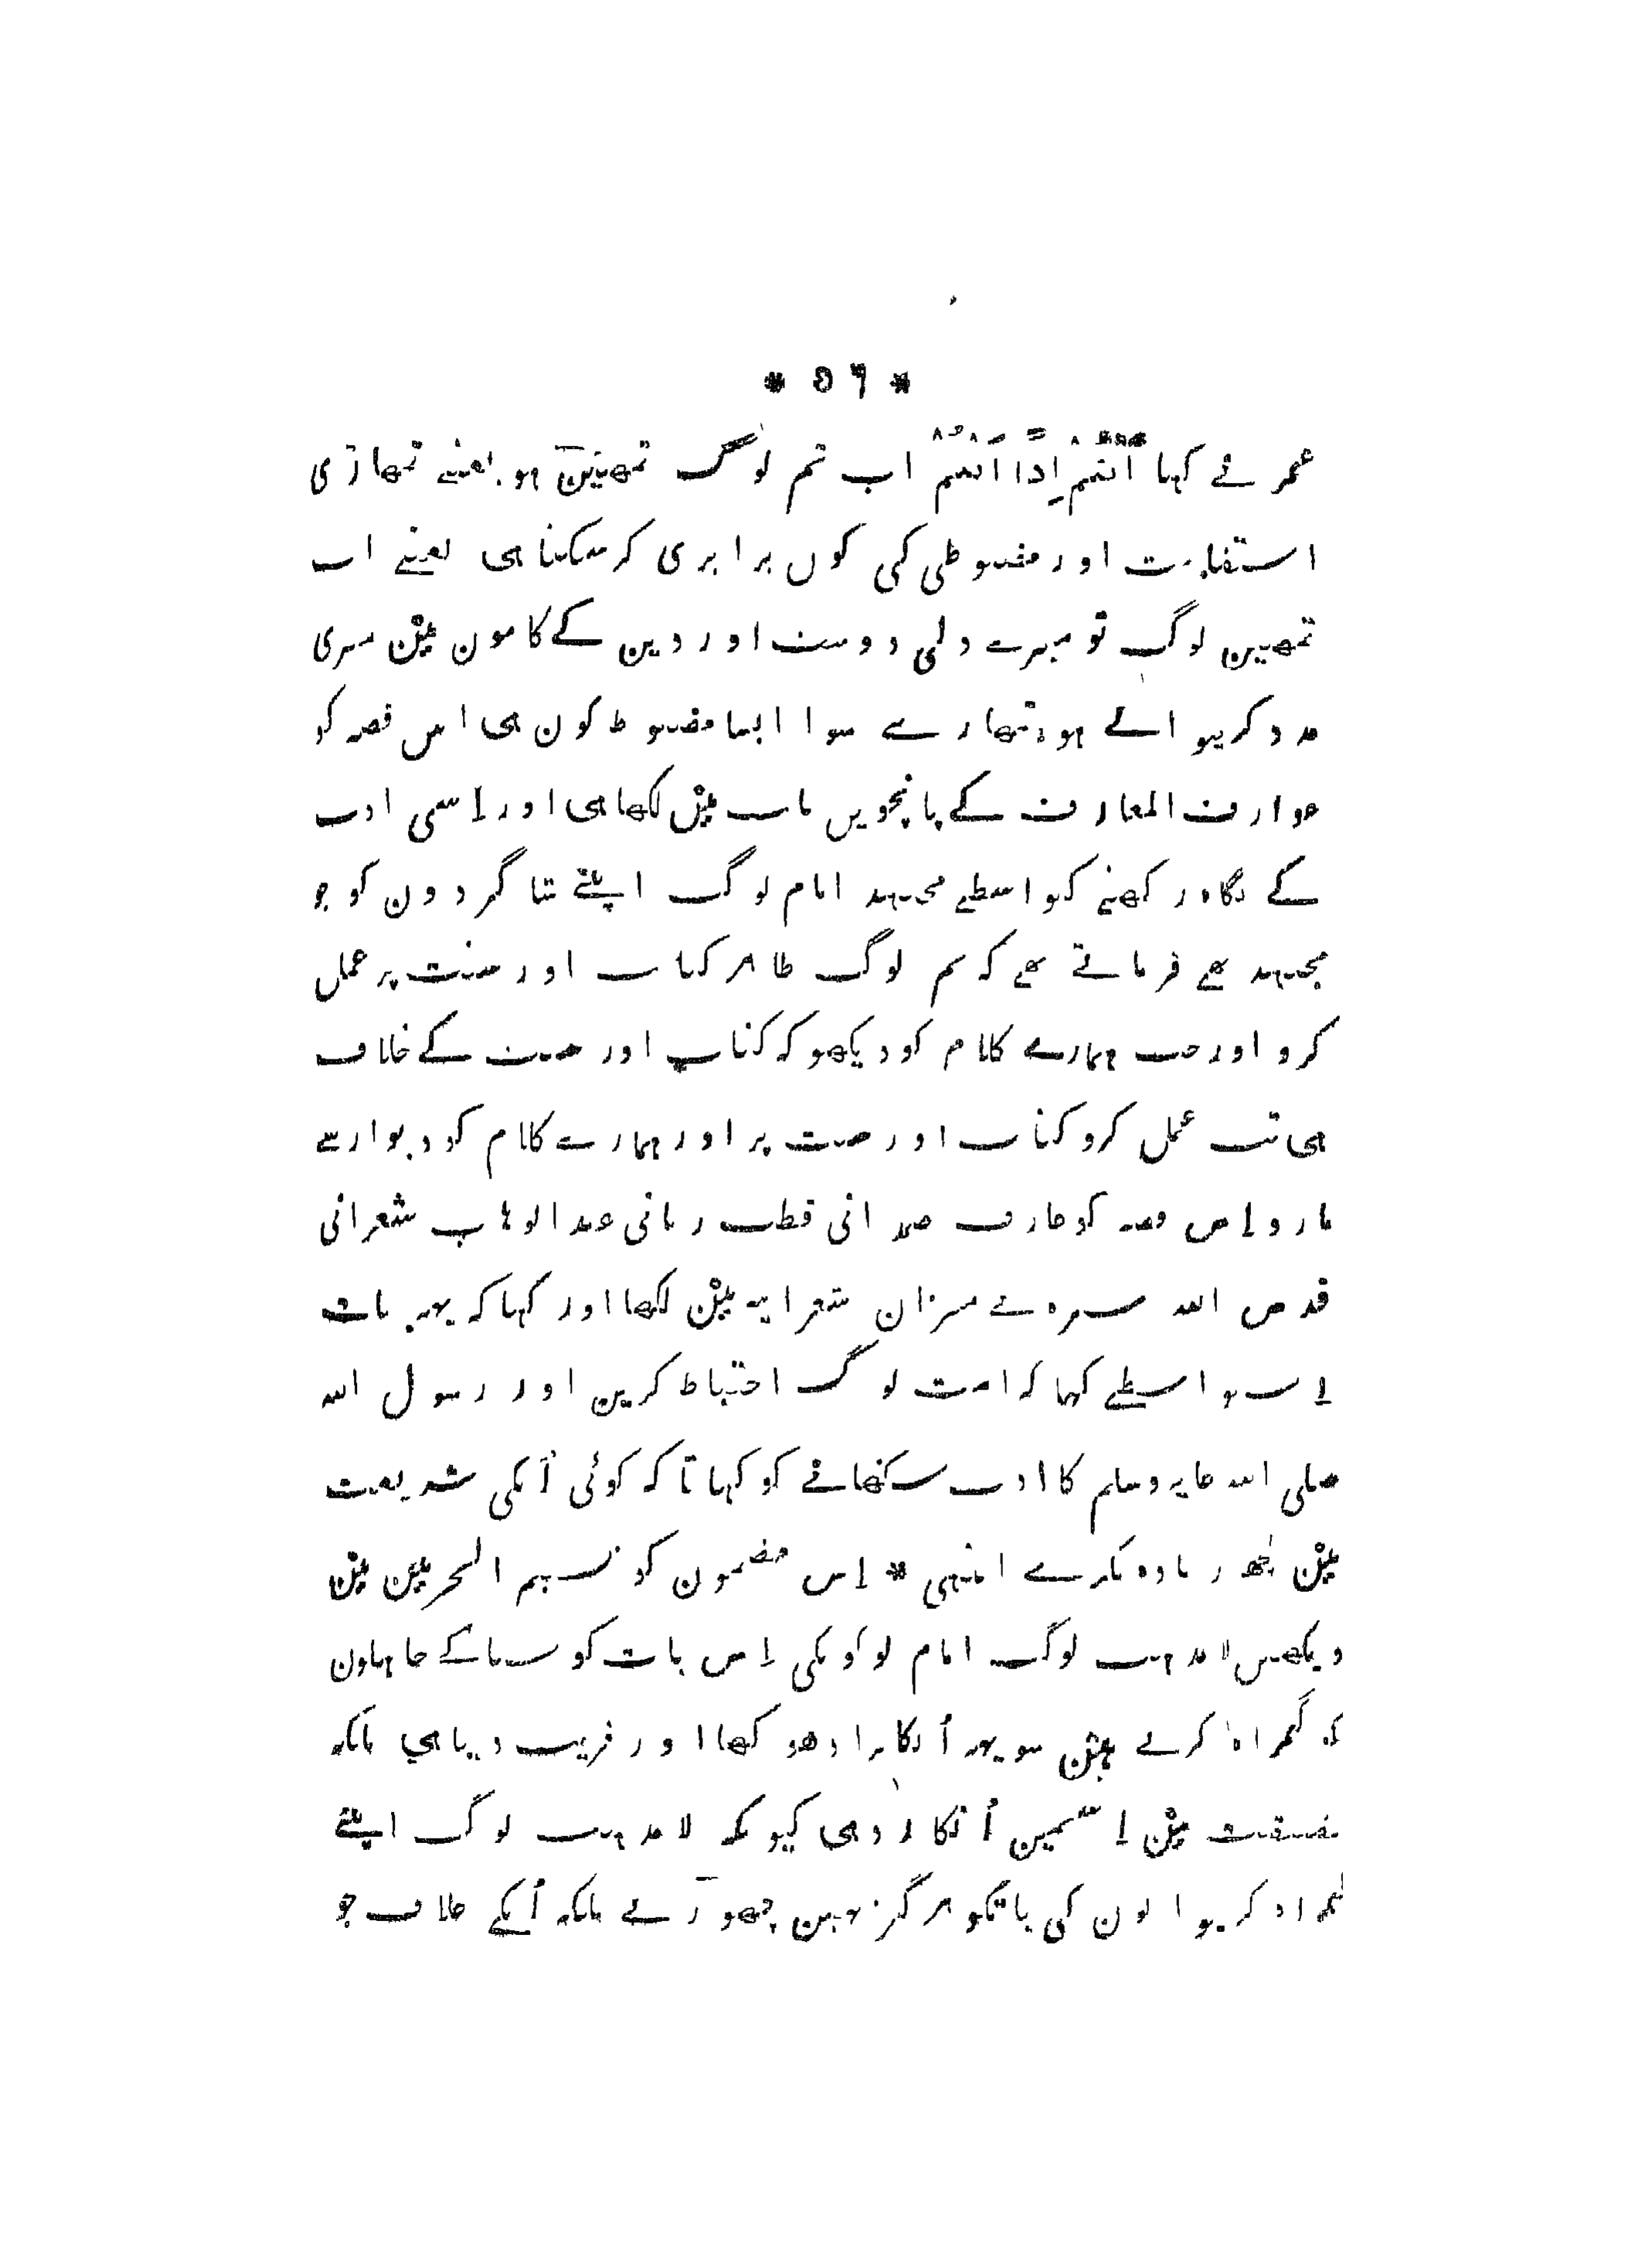 * ٥٦ *
عمر نے کہا اَنْتُمْ اِذًا اَنْتُمْ اب تم لوگ تمھین ہو یعنے تمھاری
استقامت اور مضبوطی کی کون برابری کر سکتا ہی یعنے اب
تمھین لوگ تو میرے دلی دوست اور دین کے کامون مین میری
مدد کرنیوالے ہو تمھارے سوا ایسا مضبوط کون ہی اس قصہ کو
عوارف المعارف کے پانچوین باب مین لکھا ہی اور اِسی ادب
کے نگاہ رکھنے کیواسطے مجتہد امام لوگ اپنے شاگردون کو جو
مجتہد تھے فرماتے تھے کہ تم لوگ ظاہر کتاب اور سنت پر عمل
کرو اور جب ہمارے کلام کو دیکھو کہ کتاب اور سنت کے خلاف
ہی تب عمل کرو کتاب اور سنت پر اور ہمارے کلام کو دیوار سے
مارو اِس قصہ کو عارف صمدانی قطب ربانی عبدالوہاب شعرانی
قدس اللہ سرہ نے میزان شعرانیہ مین لکھا اور کہا کہ یہہ بات
اِسواسطے کہا کہ امت لوگ احتیاط کرین اور رسول اللہ
صلی اللہ علیہ وسلم کا ادب سکھانے کو کہا تا کہ کوئی اُنکی شریعت
مین کچھ زیادہ نکرے انتہی * اِس مضمون کو نسیم الحرمین مین
دیکھیں لا مذہب لوگ امام لوگونکی اِس بات کو سنا کے جاہلون
کو گمراہ کرتے ہین سو یہہ اُنکا بڑا دھوکھا اور فریب دینا ہی بلکہ
حقیقت مین اِسمین اُنکا رد ہی کیونکہ لا مذہب لوگ اپنے
گمراہ کرنیوالون کی باتکو ہرگز نہین چھوڑتے بلکہ اُنکے خلاف جو